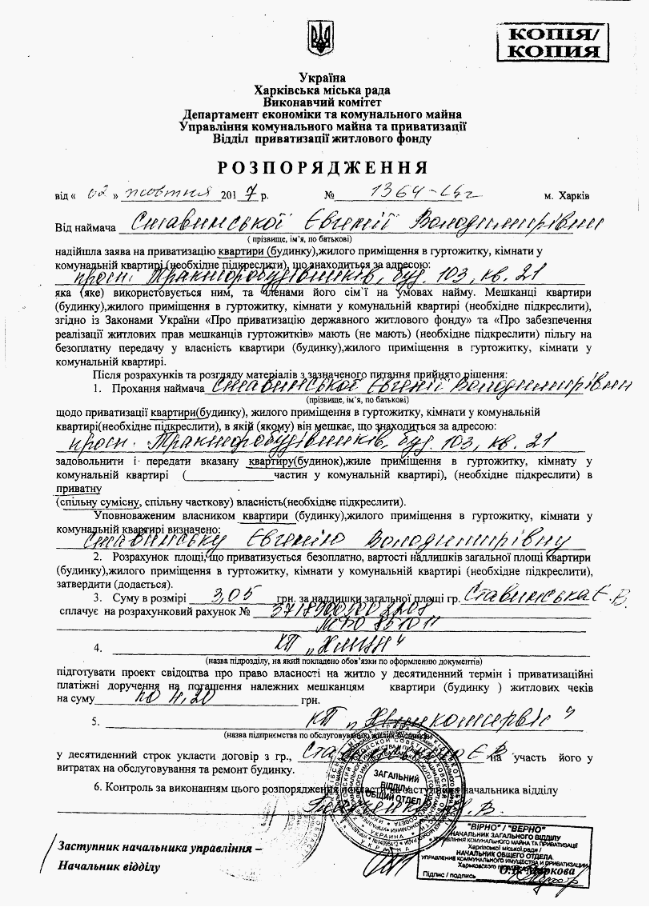 КОПІЯ/
КОПИЯ
Україна
Харківська міська рада
Виконавчий комітет
Департамент економіки та комунального майна
Управління комунального майна та приватизації
Відділ приватизації житлового фонду
РОЗПОРЯДЖЕННЯ
від « 02 » жовтня 2017 р. № 1364- м. Харків
Від наймача Ставинської Євгенії Володимирівни
( прізвище, ім'я, по батькові)
надійшла заява на приватизацію квартири (будинку),жилого приміщення в гуртожитку, кімнати у
комунальній квартирі (необхідне підкреслити), що знаходиться за адресою:
просп. Тракторобудівників, буд. 103, кв. 21
яка (яке) використовується ним, та членами його сім'ї на умовах найму. Мешканці квартири
(будинку),жилого приміщення в гуртожитку, кімнати у комунальній квартирі (необхідне підкреслити),
згідно із Законами України «Про приватизацію державного житлового фонду» та «Про забезпечення
реалізації житлових прав мешканців гуртожитків» мають (не мають) (необхідне підкреслити) пільгу на
безоплатну передачу у власність квартири (будинку),жилого приміщення в гуртожитку, кімнати у
комунальній квартирі.
Після розрахунків та розгляду матеріалів з зазначеного питання прийнято рішення:
1. Прохання наймача Ставинської Євгенії Володимирівни
(прізвище, ім'я, по батькові)
щодо приватизації квартири(будинку), жилого приміщення в гуртожитку, кімнати у комунальній
квартирі(необхідне підкреслити), в якій (якому) він мешкає, що знаходиться за адресою:
просп. Тракторобудівників, буд. 103, кв. 21
задовольнити і передати вказану квартиру(будинок),жиле приміщення в гуртожитку, кімнату у
комунальній квартирі ( частин у комунальній квартирі), (необхідне підкреслити) в
приватну
(спільну сумісну, спільну часткову) власність(необхідне підкреслити).
Уповноваженим власником квартири (будинку),жилого приміщення в гуртожитку, кімнати у
комунальній квартирі визначено:
Ставинську Євгенію Володимирівну
2. Розрахунок площі, що приватизується безоплатно, вартості надлишків загальної площі квартири
(будинку),жилого приміщення в гуртожитку, кімнати у комунальній квартирі (необхідне підкреслити),
затвердити (додається).
3. Суму в розмірі 3,05 грн. за надлишки загальної площі гр. Ставинська Є.В.
сплачує на розрахунковий рахунок №
МФО 851011
4. КП
(назва підрозділу, на який покладено обов'язки по оформленню документів)
підготувати проект свідоцтва про право власності на житло у десятиденний термін і приватизаційні
платіжні доручення на погашення належних мешканцям квартири (будинку ) житлових чеків
на суму по 4,20 грн.
5. КП „Жилкомсервіс"
(назва підприємства по обслуговуванню
у десятиденний строк укласти договір з гр., на участь його у
витратах на обслуговування та ремонт будинку.
6. Контроль за виконанням цього розпорядження начальника відділу
ЗАГАЛЬНИЙ
ВІДДІЛ
ОБЩИЙ ОТДЕЛ
Заступник начальника управління –
Начальник відділу
"ВІРНО" / "ВЕРНО"
НАЧАЛЬНИК ЗАГАЛЬНОГО ВІДДІЛУ
УПРАВЛІННЯ КОМУНАЛЬНОГО МАЙНА ТА ПРИВАТИЗАЦІЇ
Харківської міської ради /
НАЧАЛЬНИК ОБЩЕГО ОТДЕЛА
УПРАВЛЕНИЕ КОММУНАЛЬНОГО ИМУЩЕСТВА И ПРИВАТИЗАЦИИ
Харьковского
Маркова
Підпис / подпись